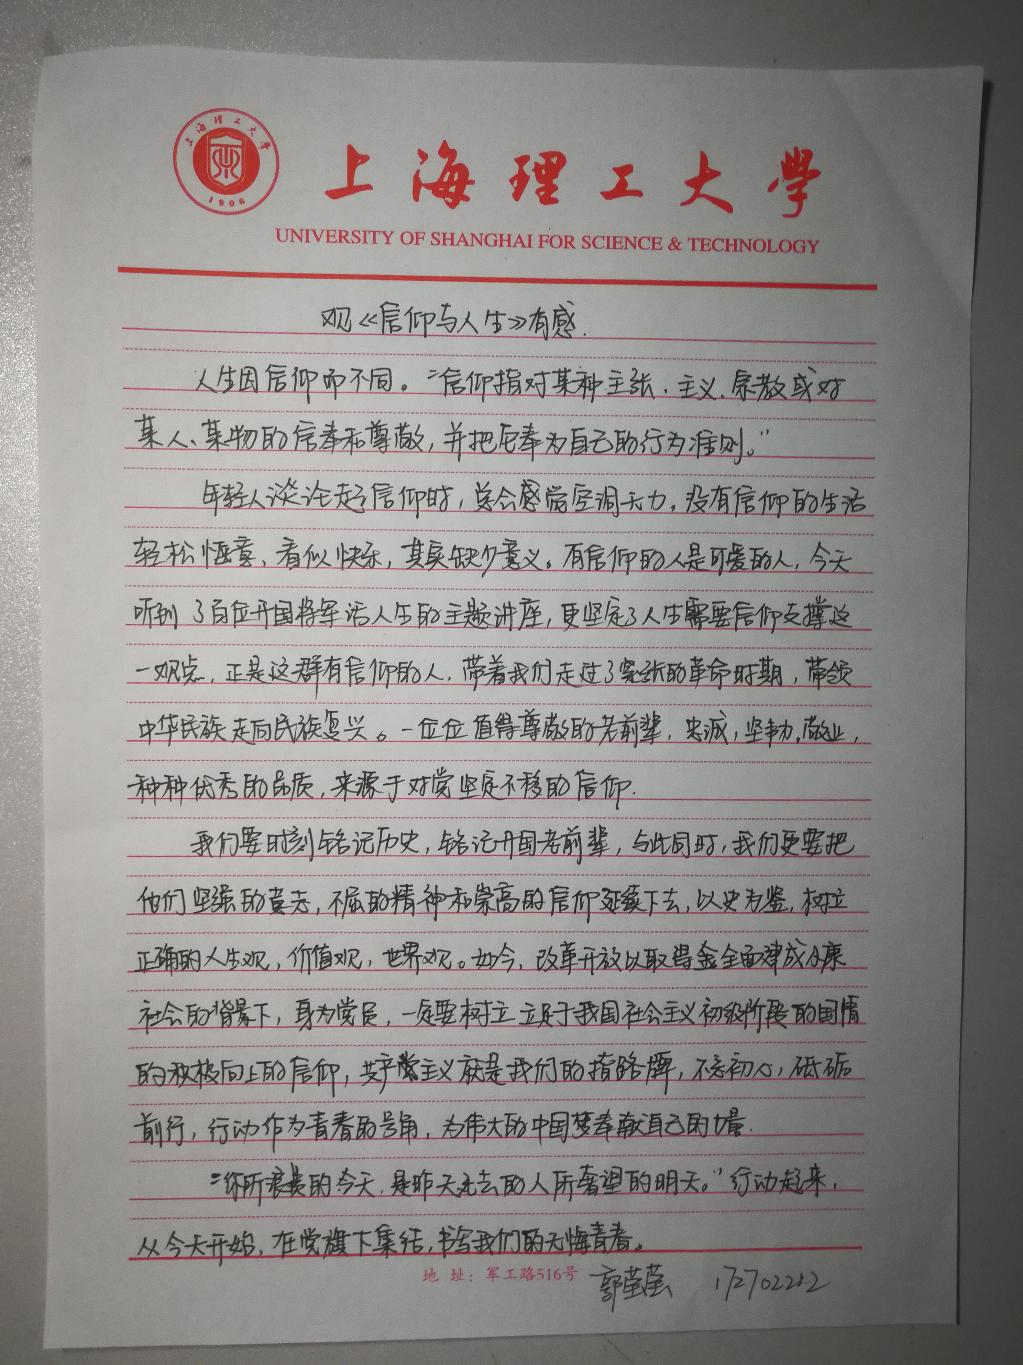 上海理工大学
1906
上海理工大學
UNIVERSITY OF SHANGHAI FOR SCIENCE & TECHNOLOGY
观《信仰与人生》有感.
人生因信仰而不同。“信仰指对某种主张、主义、宗教或对
某人、某物的信奉和尊敬，并把它奉为自己的行为准则。”
年轻人谈论起信仰时，总会感觉空洞无力，没有信仰的生活
轻松惬意，看似快乐，其实缺少意义。有信仰的人是可爱的人，今天
听到了百位开国将军话人生的主题讲座，更坚定了人生需要信仰支撑这
一观点，正是这群有信仰的人，带着我们走过了紧张的革命时期，带领
中华民族走向民族复兴。一位位值得尊敬的老前辈，忠诚，坚韧，敬业，
种种优秀的品质，来源于对党坚定不移的信仰.
我们要时刻铭记历史，铭记开国老前辈，与此同时，我们更要把
他们坚强的意志，不屈的精神和崇高的信仰延续下去，以史为鉴，树立
正确的人生观，价值观，世界观。如今，改革开放以取得全面建成小康
社会的背景下，身为党员，一定要树立立足于我国社会主义初级阶段的国情
的积极向上的信仰，共产主义就是我们的指路牌，不忘初心，砥砺
前行，行动作为青春的号角，为伟大的中国梦奉献自己的力量.
“你所浪费的今天，是昨天死去的人所奢望的明天。”行动起来，
从今天开始，在党旗下集结，书写我们的无悔青春。
地 址：军工路516号
郭莹莹 172702212